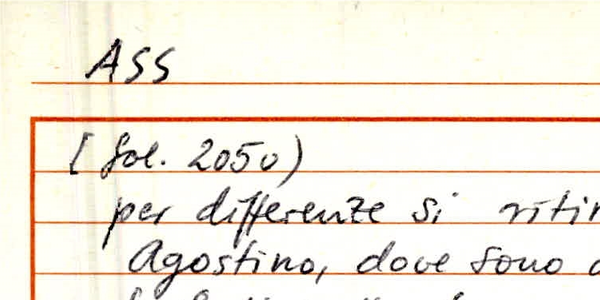 ASS
[fol. 2050)
per differenze si
Agostino, dove sono